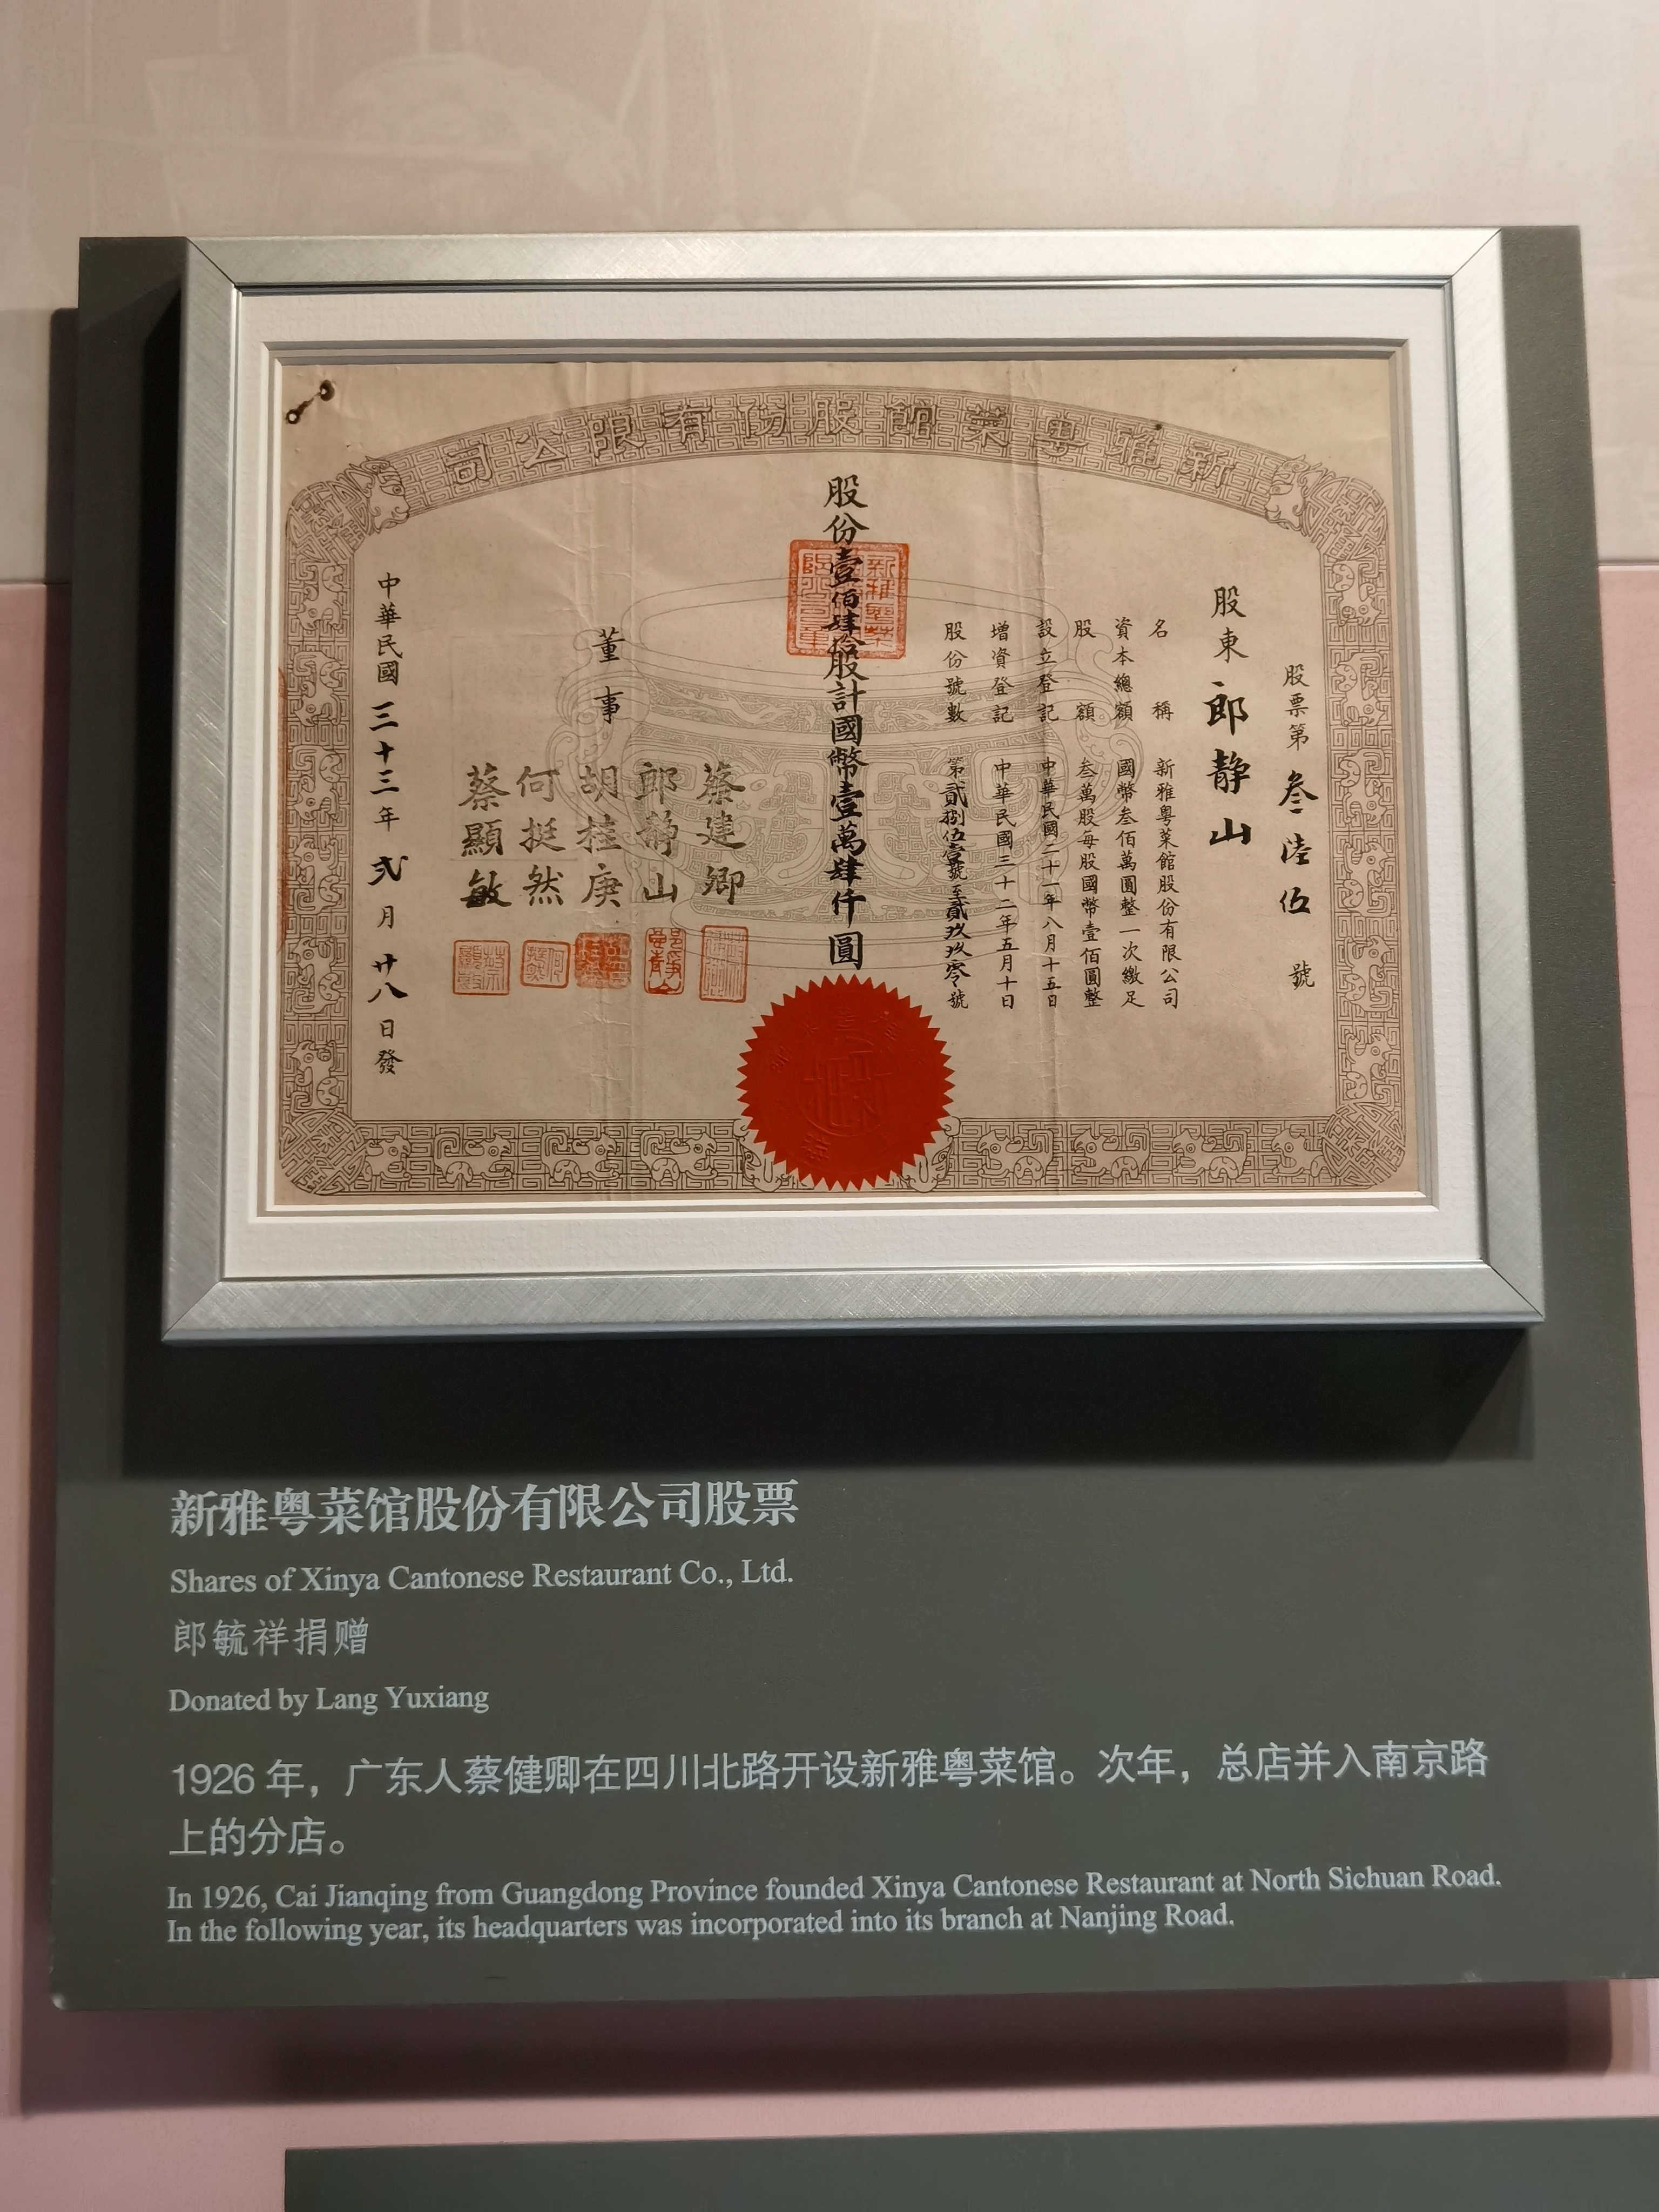 新雅粵菜館股份有限公司
股票第叁陸伍號
股東郎静山
名稱 新雅粵菜館股份有限公司
資本總額 國幣叁佰萬圓整一次繳足
股額 叁萬股每股國幣壹佰圓整
設立登記 中華民國二十一年八月十五日
增資登記 中華民國三十二年五月十日
股份號數 第貳捌伍壹號至貳玖玖零號
股份壹佰肆拾股計國幣壹萬肆仟圓
董事
蔡建卿
郎靜山
胡桂庚
何挺然
蔡顯敏
中華民國三十三年弍月廿八日發
新雅粤菜馆股份有限公司股票
Shares of Xinya Cantonese Restaurant Co., Ltd.
郎毓祥捐赠
Donated by Lang Yuxiang
1926 年，广东人蔡健卿在四川北路开设新雅粤菜馆。次年，总店并入南京路
上的分店。
In 1926, Cai Jianqing from Guangdong Province founded Xinya Cantonese Restaurant at North Sichuan Road.
In the following year, its headquarters was incorporated into its branch at Nanjing Road.